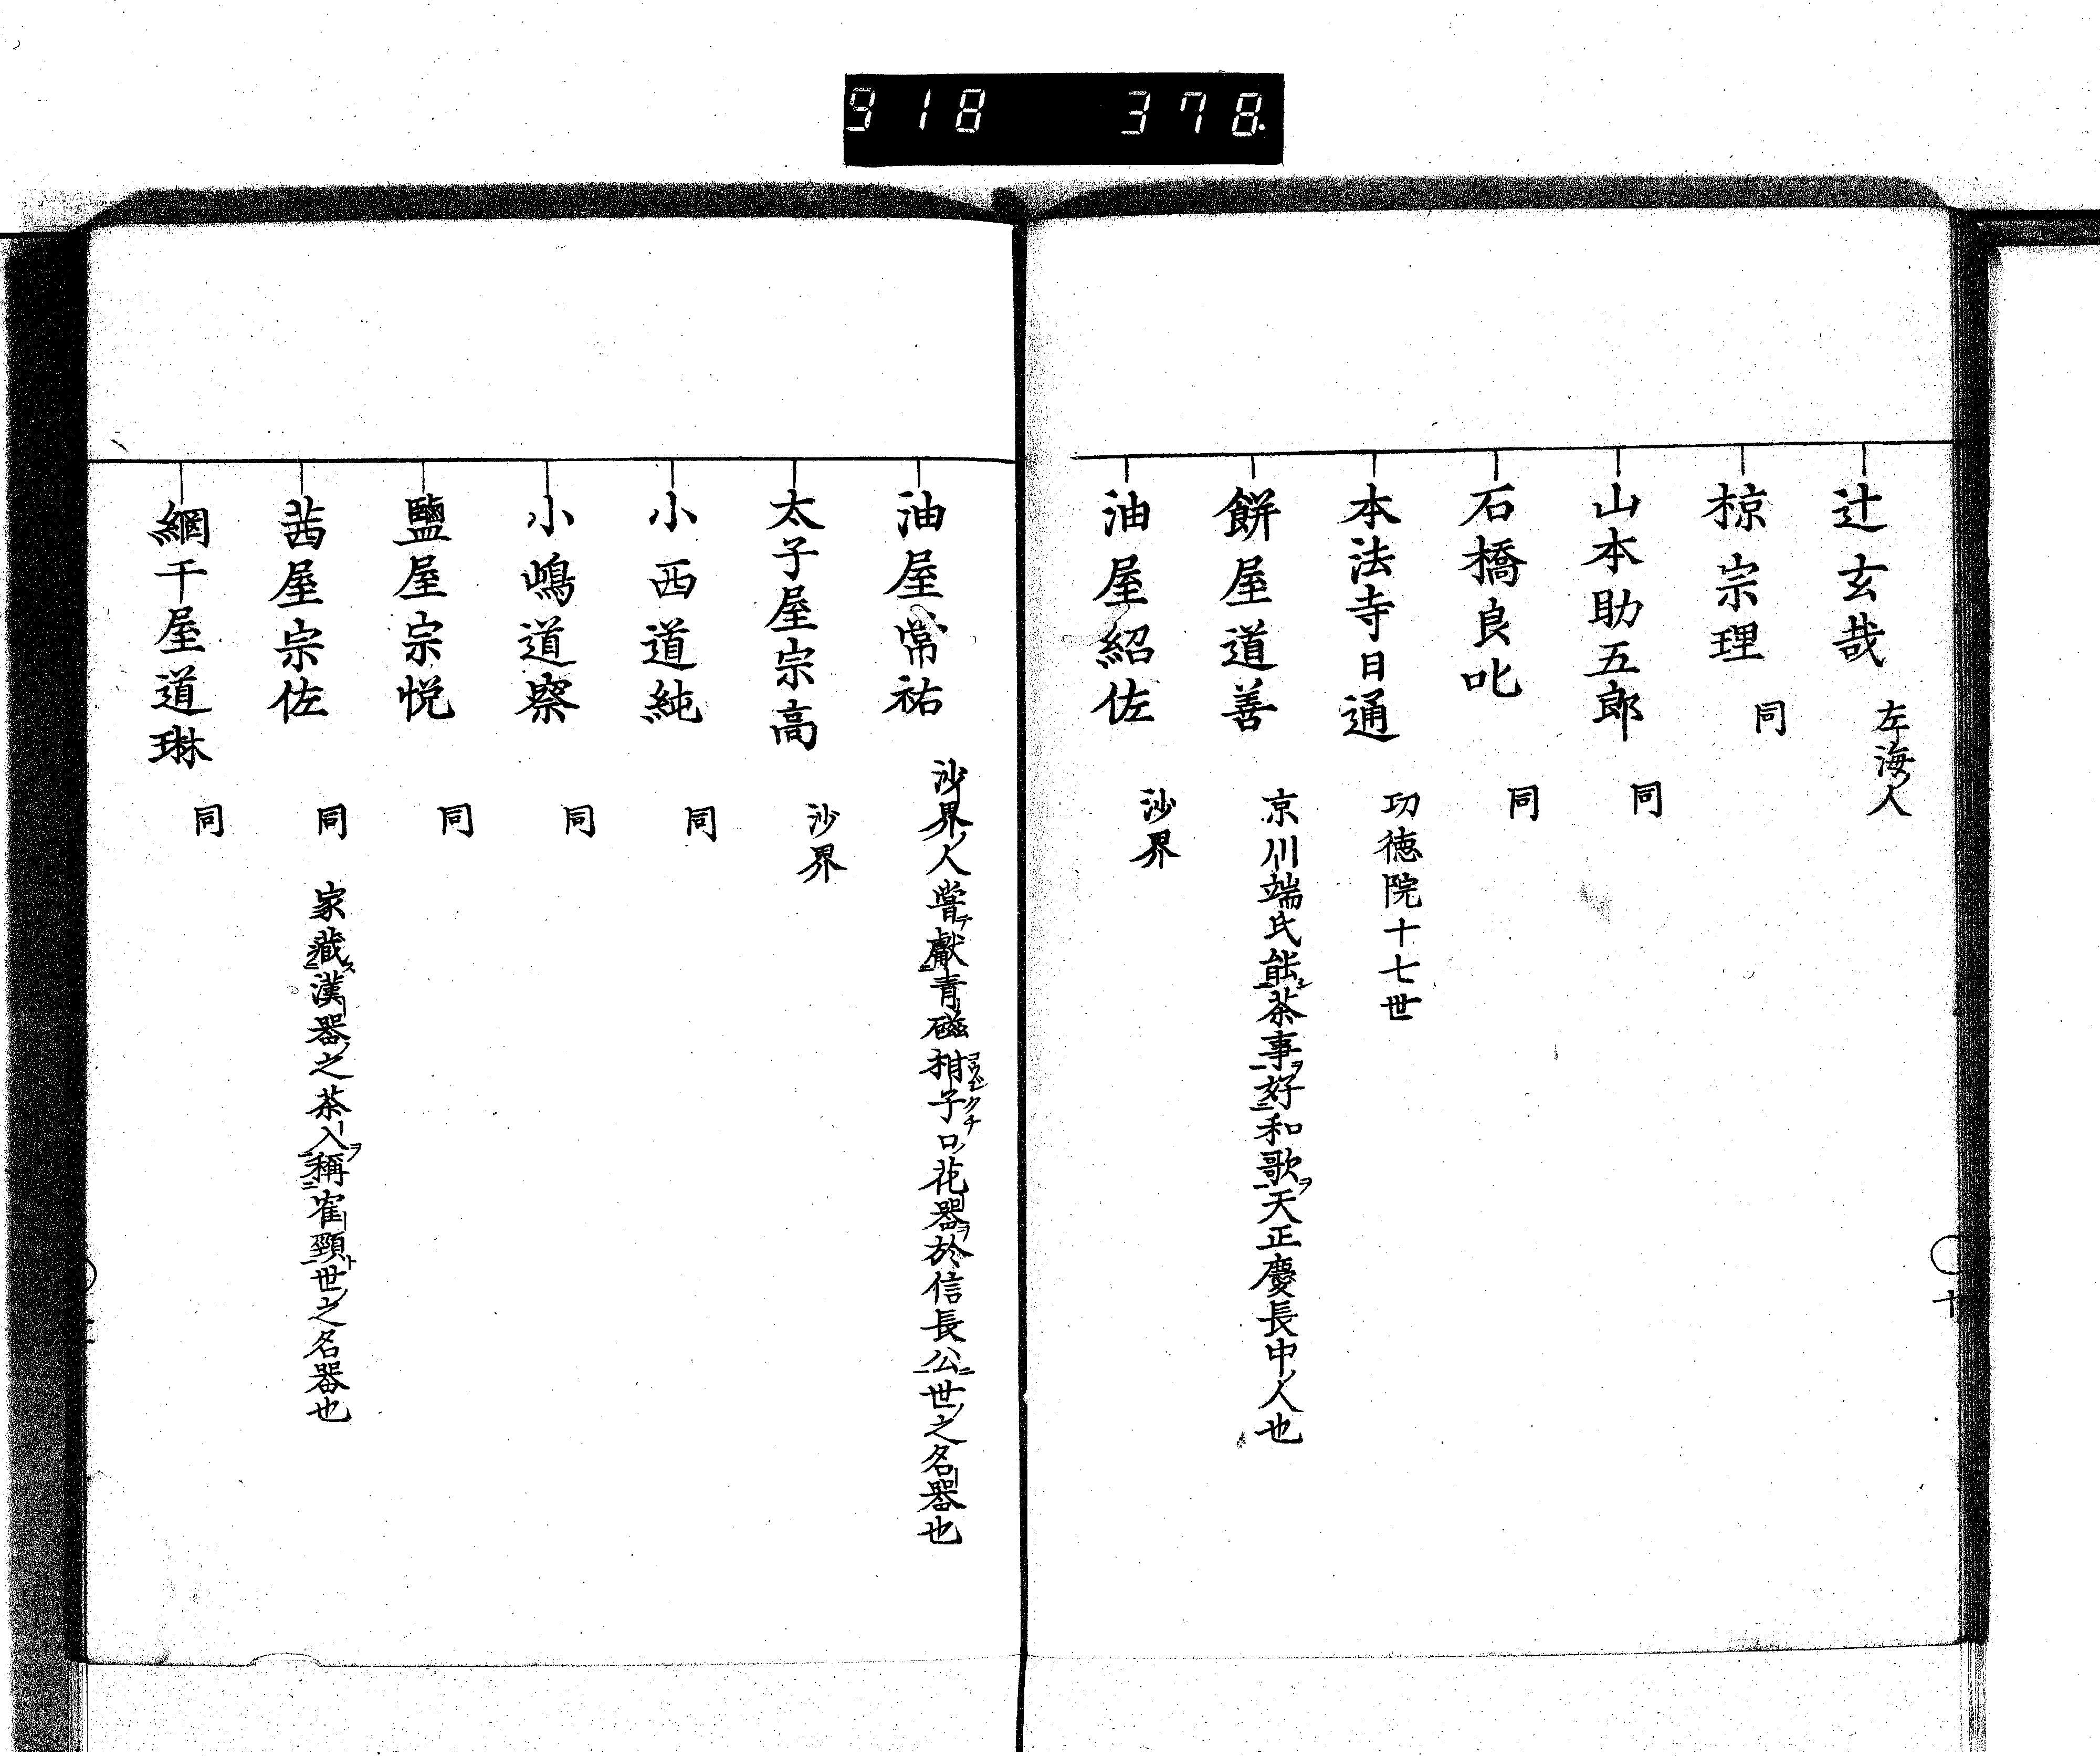 918 378.
辻玄哉 左海ノ人
椋宗理 同
山本助五郎 同
石橋良叱 同
本法寺日通 功徳院十七世
餅屋道善 京川端氏能茶事好和歌天正慶長中ノ人也
油屋紹佐 沙界
十
油屋常祐 沙界ノ人嘗献青磁子口花器於信長公世ノ之名器也
太子屋宗高 沙界
小西道純 同
小嶋道察 同
鹽屋宗悦 同
茜屋宗佐 同 家蔵漢器之茶入称隺頸世ノ之名器也
網干屋道琳 同